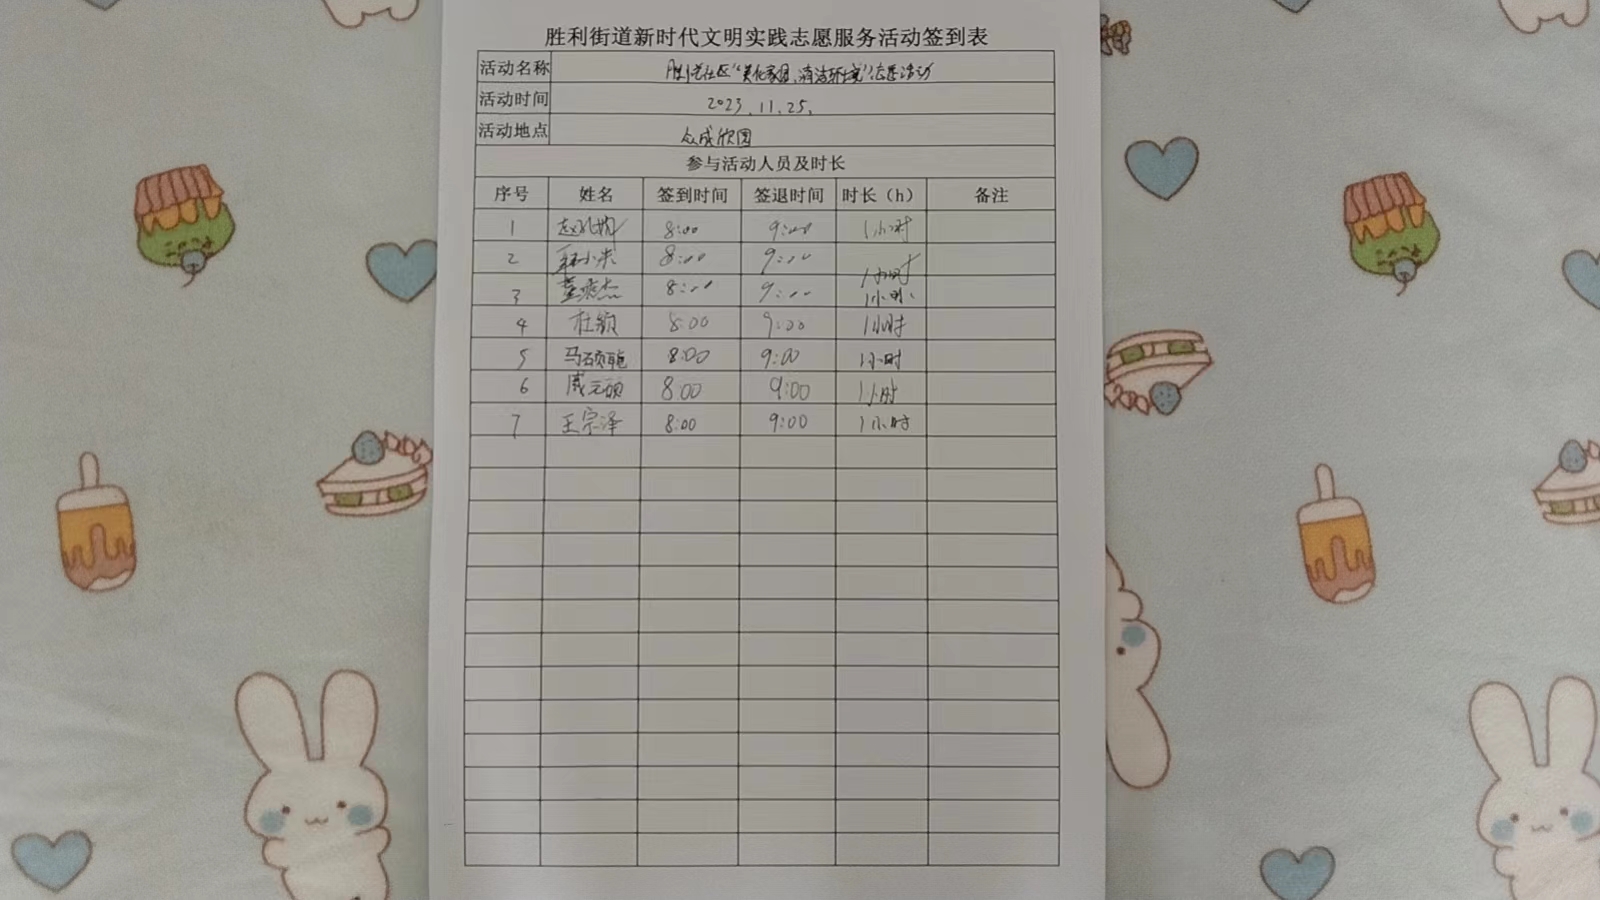 胜利街道新时代文明实践志愿服务活动签到表
活动名称 社区“美化家园、清洁环境”志愿活动
活动时间 2023.11.25.
活动地点 众成欣园
参与活动人员及时长
序号 姓名 签到时间 签退时间 时长（h） 备注
1 8:00 9:00 1小时
2 8:00 9:00 1小时
3 8:00 9:00 1小时
4 杜颖 8:00 9:00 1小时
5 马硕 8:00 9:00 1小时
6 戚元硕 8:00 9:00 1小时
7 王宗泽 8:00 9:00 1小时